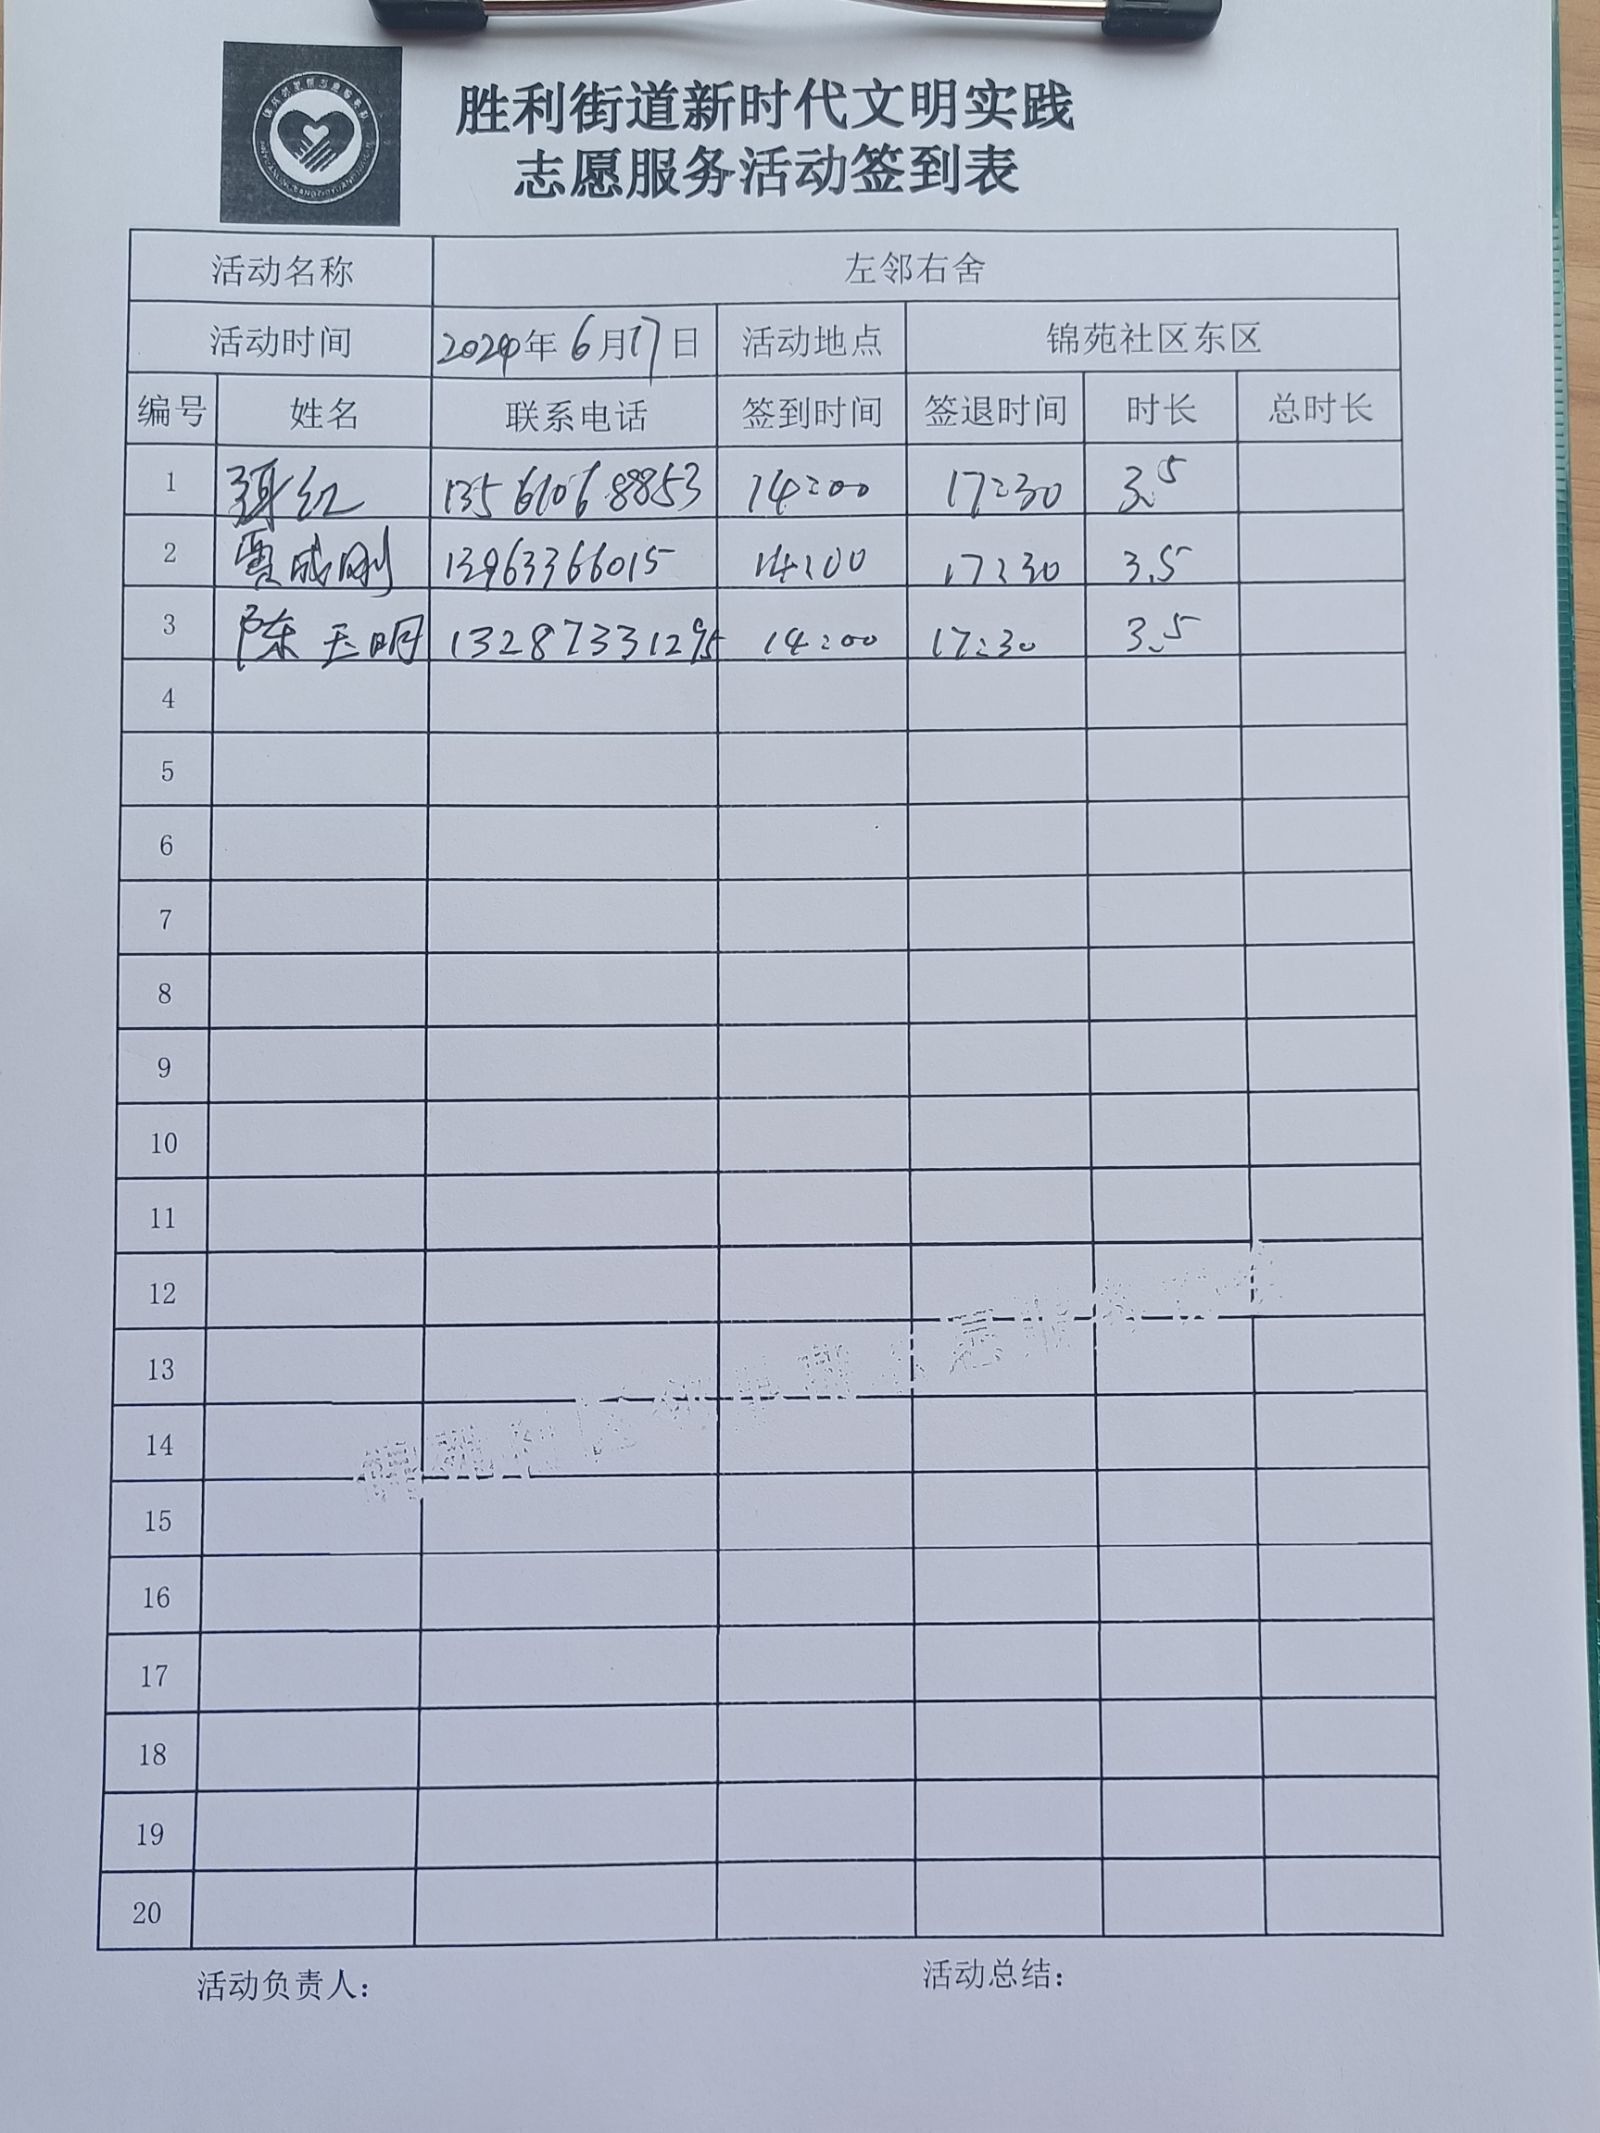 胜利街道新时代文明实践
志愿服务活动签到表
活动名称 左邻右舍
活动时间 2024年6月17日 活动地点 锦苑社区东区
编号 姓名 联系电话 签到时间 签退时间 时长 总时长
1 红 13561068853 14:00 17:30 3.5
2 贾成刚 13963366015 14:00 17:30 3.5
3 陈玉明 13287331295 14:00 17:30 3.5
4
5
6
7
8
9
10
11
12
13
14
15
16
17
18
19
20
活动负责人： 活动总结：